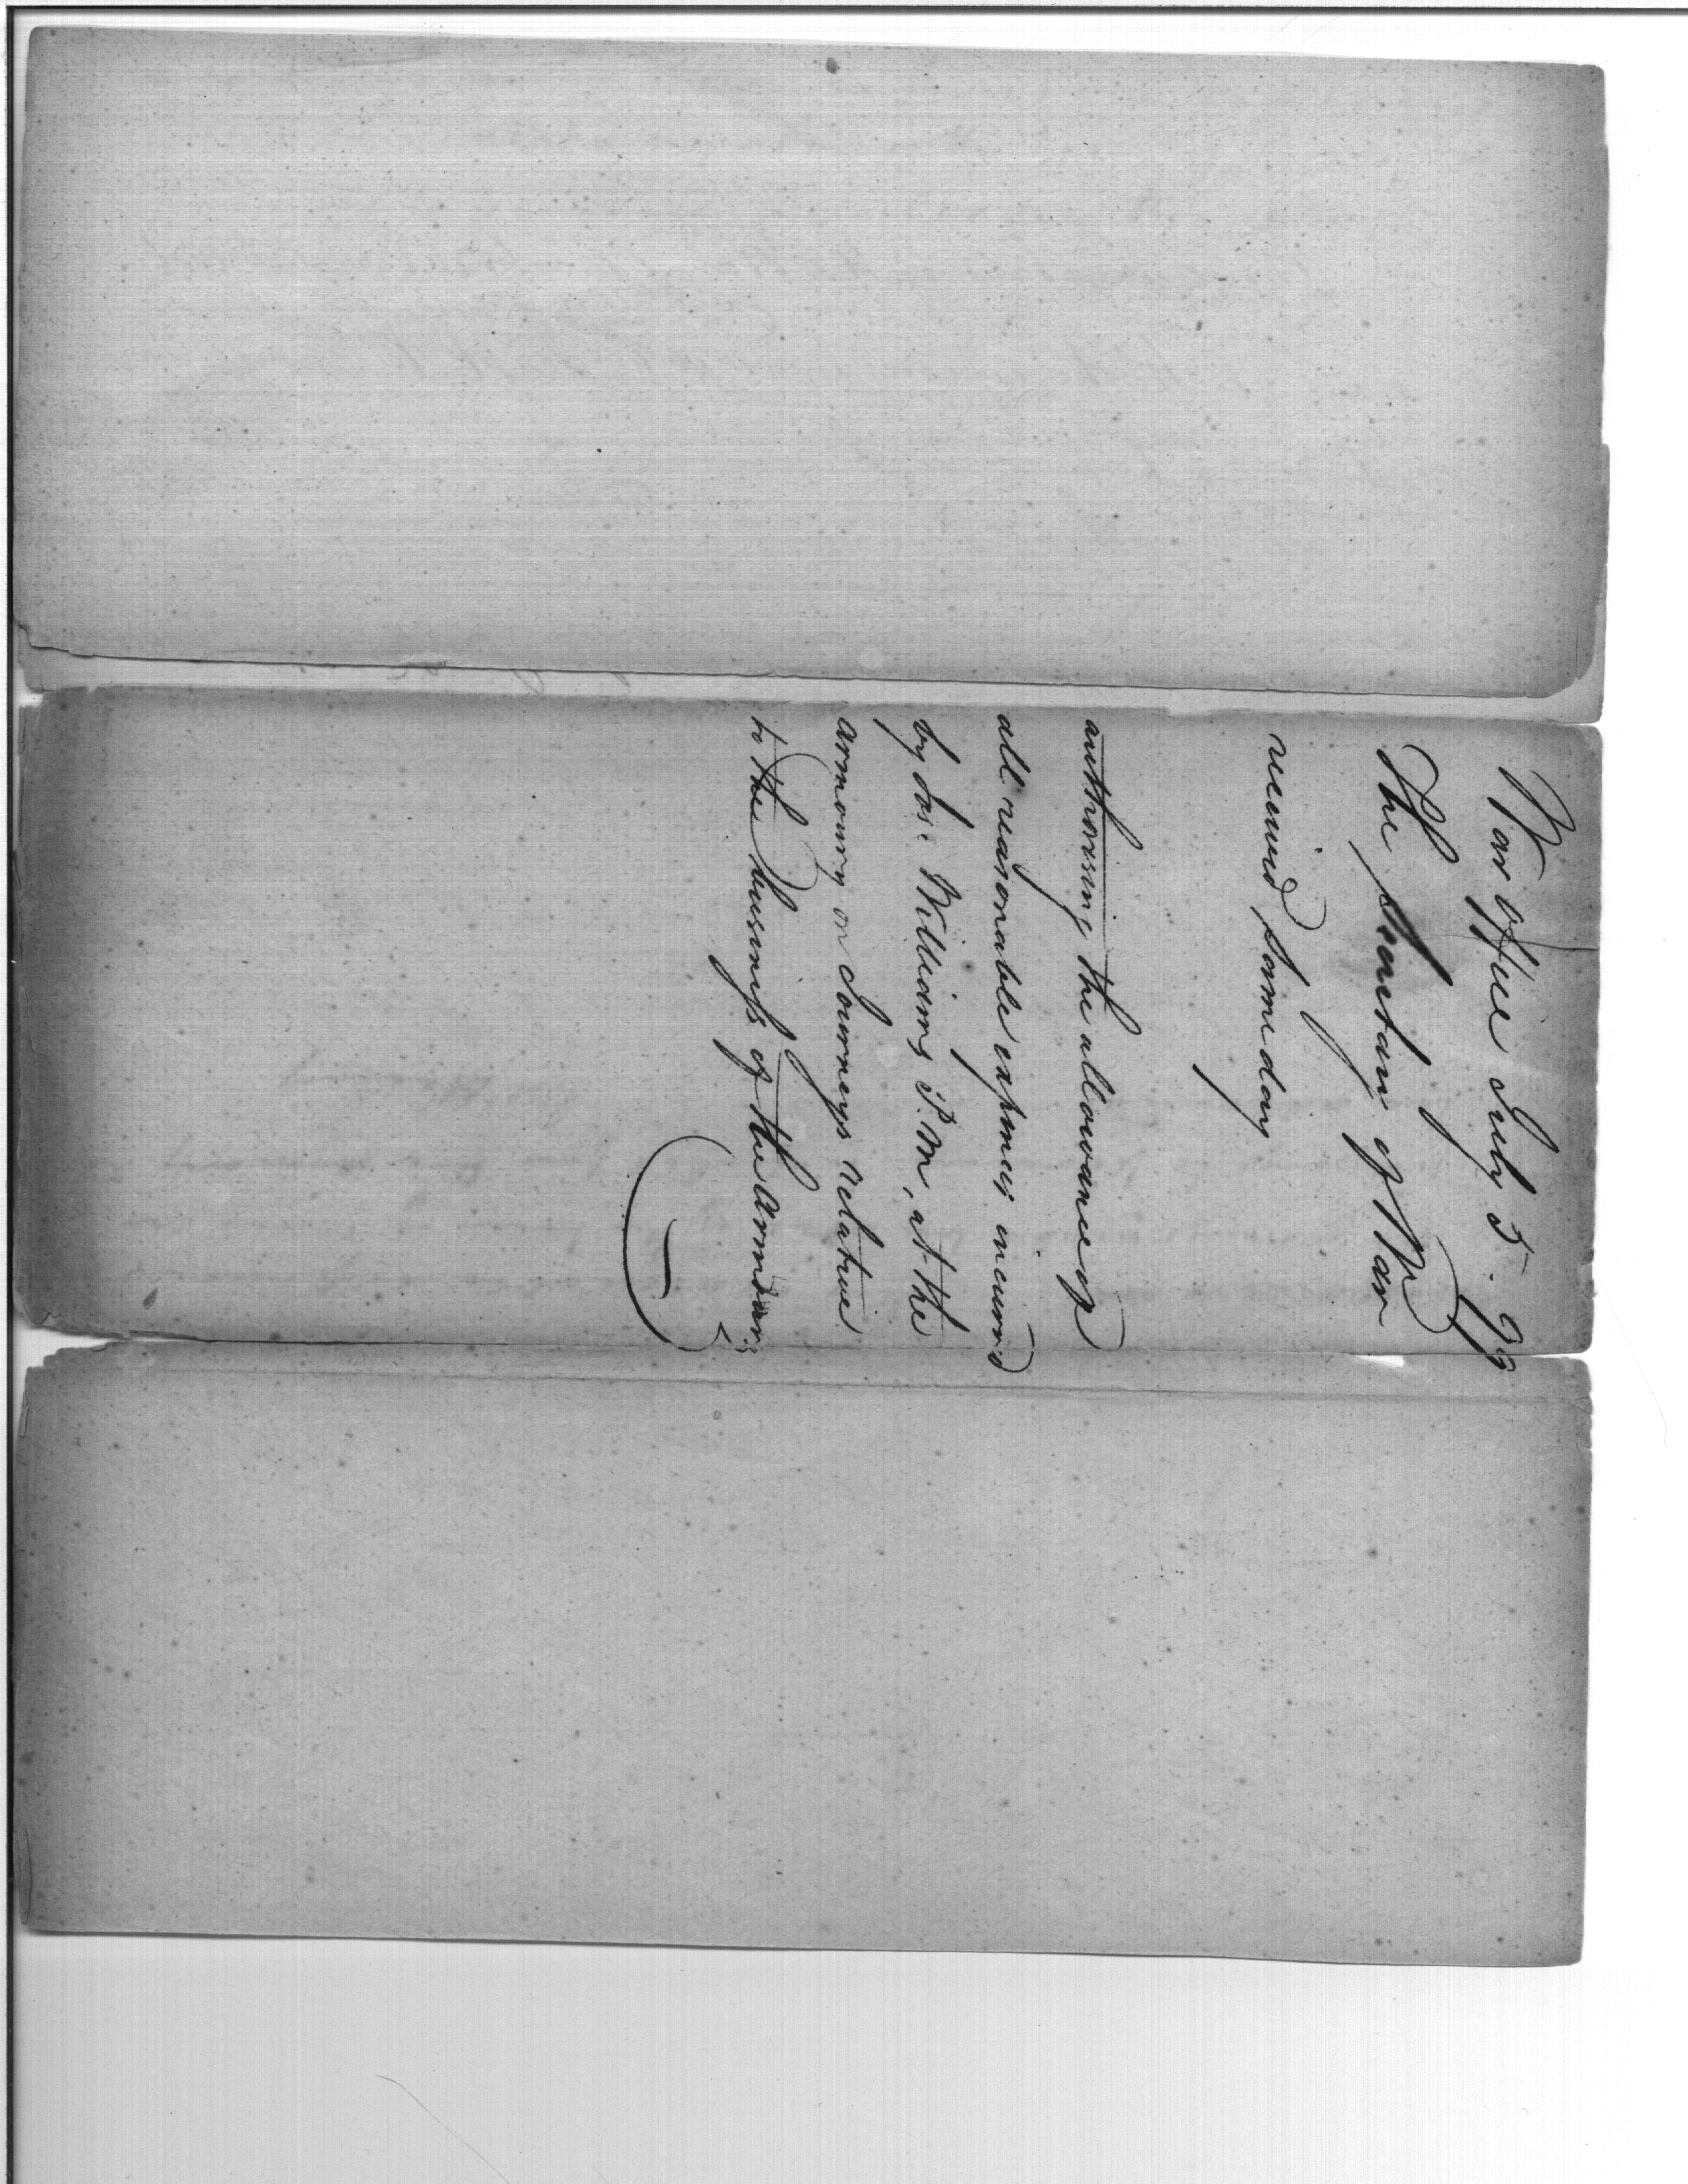 War office July 5. 99
The Secretary of War
received same day
authorising the allowance of
all reasonable expenses incurr'd
by Jos: Williams P. M, at the
armoury on Journeys relative
to the business of the Armoury